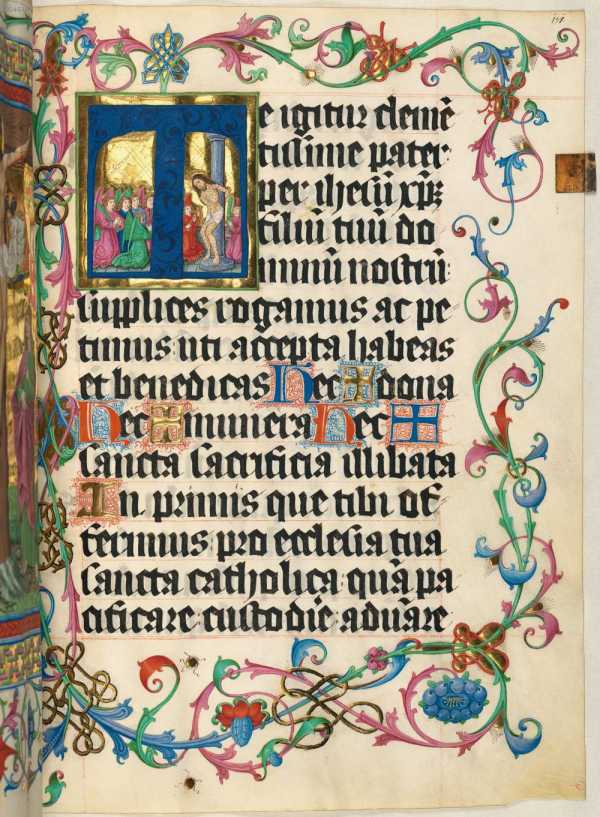 Te igitur clemē
tissime pater
per ihesū xp̄m
filiū tuū do
minū nostrū
supplices rogamus ac pe
timus uti accepta habeas
et benedicas hec ✠ dona
hec ✠ munera hec ✠
sancta sacrificia illibata
In primis que tibi of
ferimus pro ecclesia tua
sancta catholica quā pa
cificare custodire aduāre